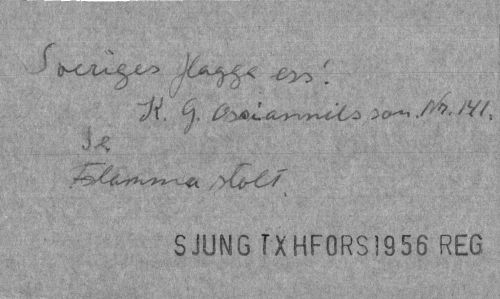 Sveriges flagga ess!
K. G. Ossiannilsson. Nr. 141.
Se
Flamma stolt.
SJUNG TXHFORS1956 REG